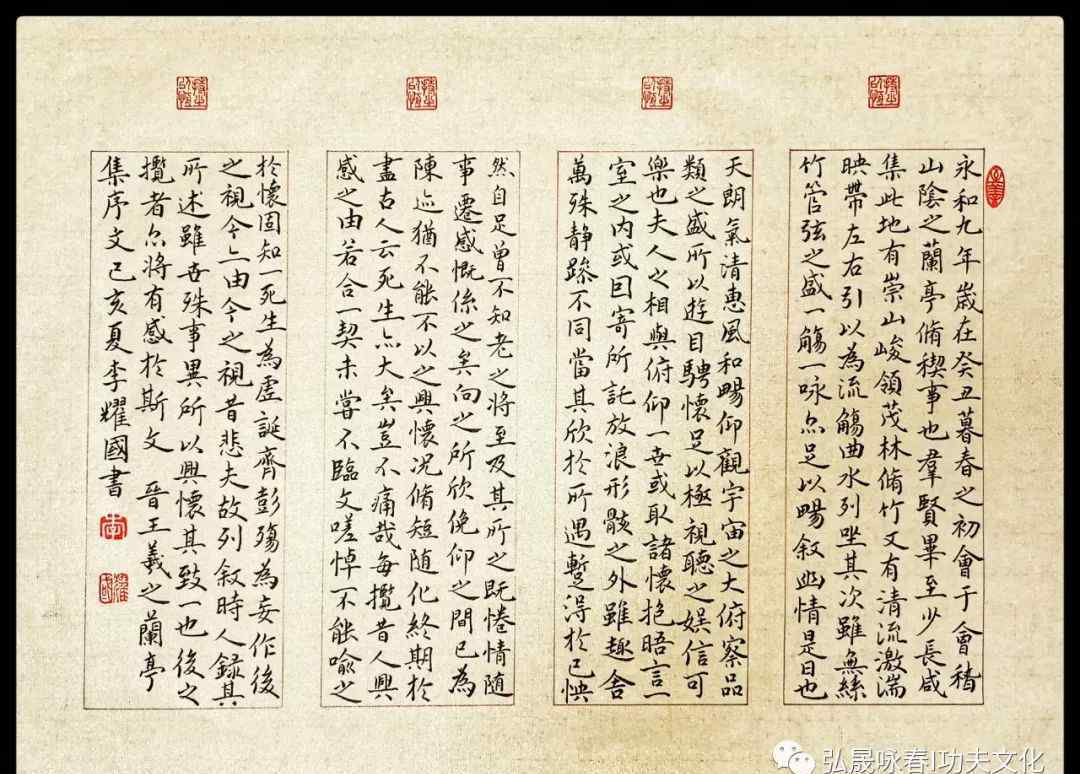 永和九年歲在癸丑暮春之初會于會稽
山陰之蘭亭脩稧事也羣賢畢至少長咸
集此地有崇山峻領茂林脩竹又有清流激湍
映帶左右引以為流觴曲水列坐其次雖無絲
竹管弦之盛一觴一咏亦足以暢叙幽情是日也
天朗氣清惠風和暢仰觀宇宙之大俯察品
類之盛所以遊目騁懷足以極視聽之娛信可
樂也夫人之相與俯仰一世或取諸懷抱晤言一
室之內或因寄所託放浪形骸之外雖趣舍
萬殊靜躁不同當其欣於所遇暫得於己怏
然自足曾不知老之將至及其所之既惓情随
事遷感慨係之矣向之所欣俛仰之間已為
陳迹猶不能不以之興懷况脩短随化終期於
盡古人云死生亦大矣豈不痛哉每攬昔人興
感之由若合一契未嘗不臨文嗟悼不能喻之
於懷固知一死生為虛誕齊彭殤為妄作後
之視今亦由今之視昔悲夫故列叙時人録其
所述雖世殊事異所以興懷其致一也後之
攬者亦將有感於斯文 晉王羲之蘭亭
集序文己亥夏李耀國書
李
耀國
弘晟咏春|功夫文化